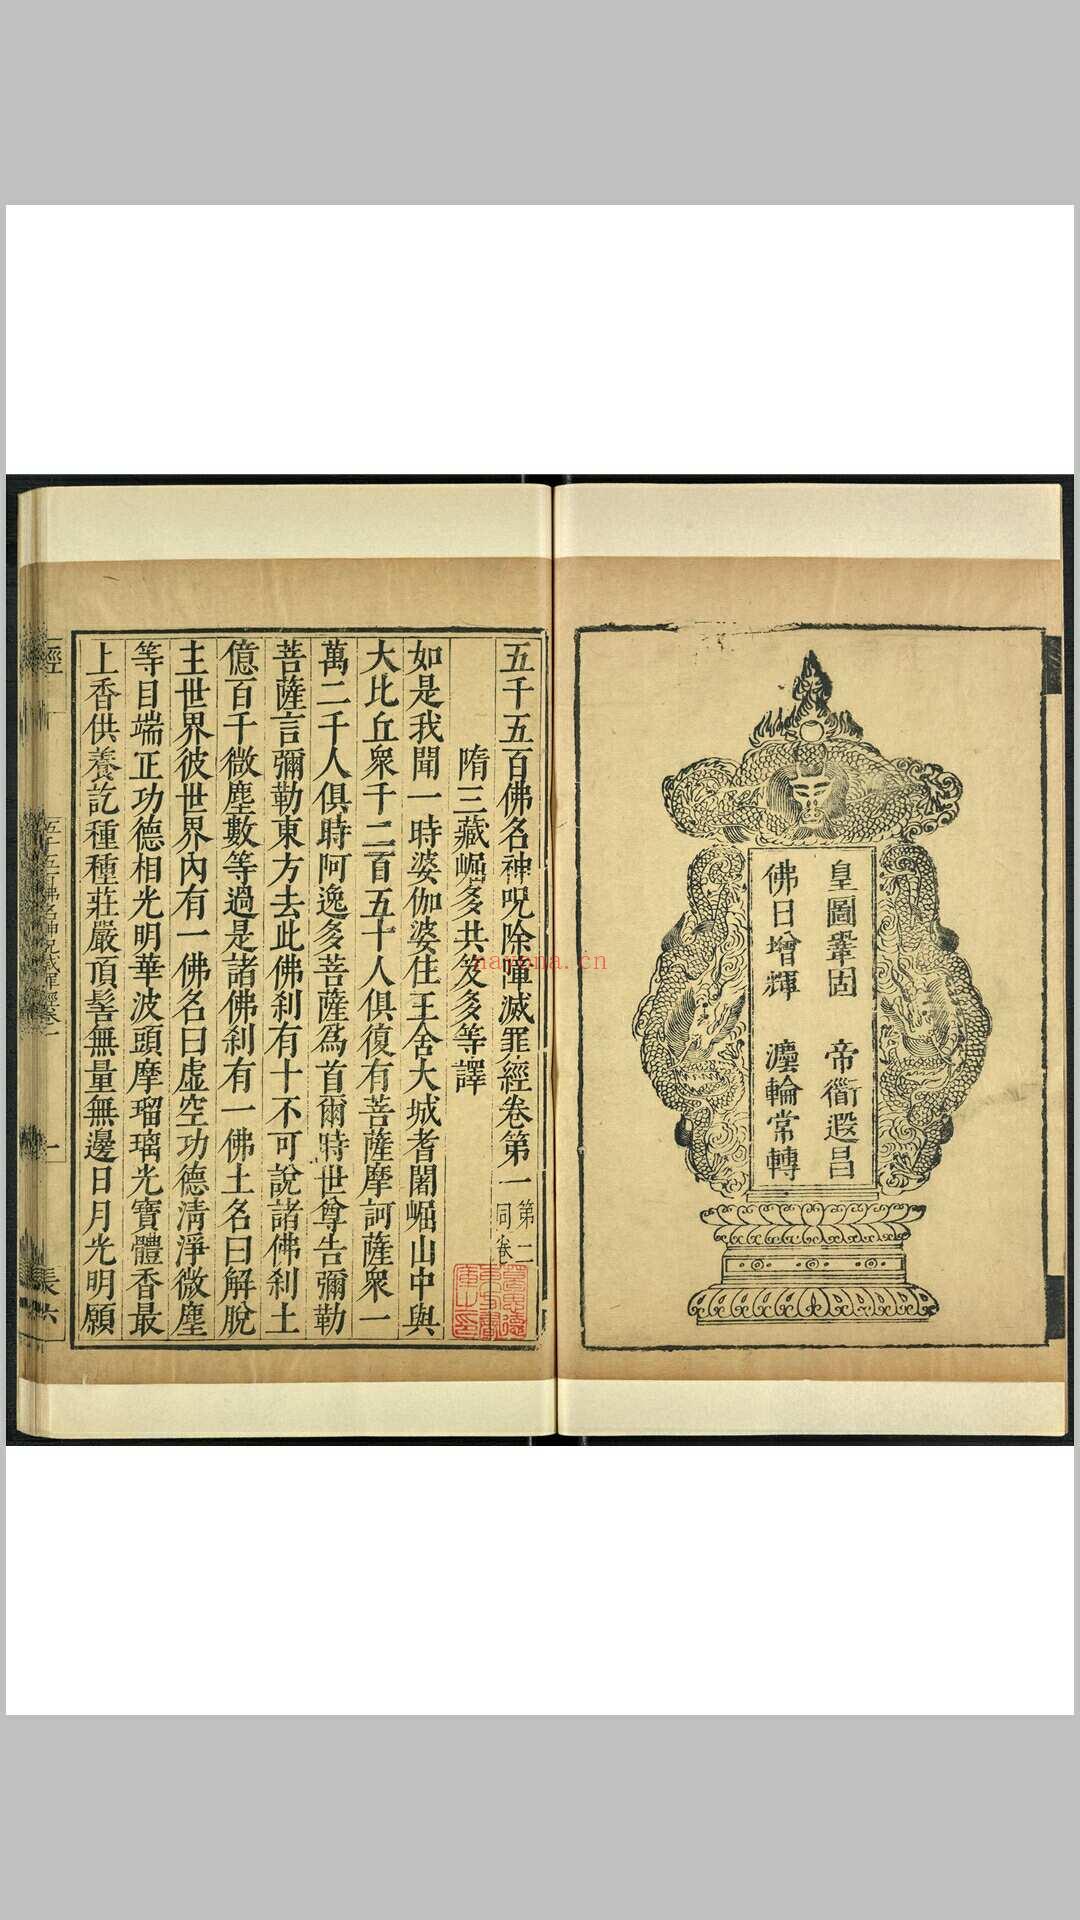 皇圖鞏固　帝衜遐昌
佛日增輝　灋輪常轉
五千五百佛名神呪除障滅罪經卷第一 第二同卷
隋三藏崛多共笈多等譯
如是我聞一時婆伽婆住王舍大城耆闍崛山中與
大比丘衆千二百五十人俱復有菩薩摩訶薩衆一
萬二千人俱時阿逸多菩薩爲首爾時世尊告彌勒
菩薩言彌勒東方去此佛刹有十不可說諸佛刹土
億百千微塵數等過是諸佛刹有一佛土名曰解脫
主世界彼世界內有一佛名曰虛空功德淸淨微塵
等目端正功德相光明華波頭摩瑠璃光寶體香最
上香供養訖種種莊嚴頂髻無量無邊日月光明願
經
一
長六
nayona.cn